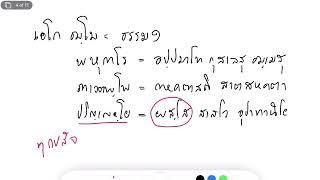 4 of 11
เอโก ธมฺโม = ธรรม ๑
พหุกาโร = อปฺปมาโท กุสเลสุ ธมฺเมสุ
ภาเวตพฺโพ = กายคตาสติ สาตสหคตา
ปริญฺเญยฺโย = ผสฺโส สาสโว อุปาทานิโย
ทุกขสัจ